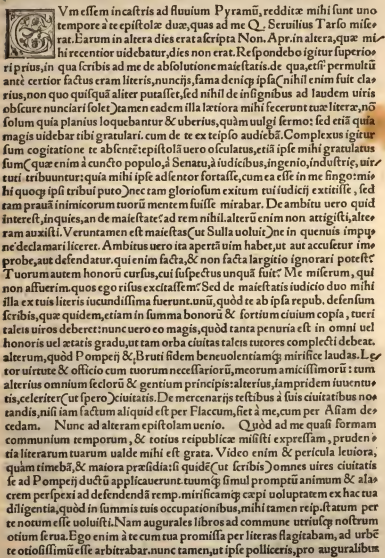 CVm essem in castris ad fluuium Pyramũ, redditæ mihi sunt uno
tempore à te epistolæ duæ, quas ad me Q. Seruilius Tarso mise-
rat. Earum in altera dies erat ascripta Non. Apr. in altera, quæ mi
hi recentior uidebatur, dies non erat. Respondebo igitur superio-
ri prius, in qua scribis ad me de absolutione maiestatis. de qua, etsi permultũ
antè certior factus eram literis, nuncijs, fama deniq; ipsa (nihil enim fuit cla-
rius, non quo quisquã aliter putasset, sed nihil de insignibus ad laudem uiris
obscure nunciari solet) tamen eadem illa lætiora mihi fecerunt tuæ literæ, nõ
solum quia planius loquebantur & uberius, quàm uulgi sermo: sed etiã quia
magis uidebar tibi gratulari, cum de te ex teipso audiebã. Complexus igitur
sum cogitatione te absentẽ: epistolã uero osculatus, etiã ipse mihi gratulatus
sum (quæ enim à cuncto populo, à Senatu, à iudicibus, ingenio, industriæ, uir-
tuti tribuuntur: quia mihi ipse adsentor fortasse, cum ea esse in me fingo: mi-
hi quoq; ipsi tribui puto) nec tam gloriosum exitum tui iudicij extitisse, sed
tam prauã inimicorum tuorũ mentem fuisse mirabar. De ambitu uero quid
interest, inquies, an de maiestate? ad rem nihil. alterũ enim non attigisti, alte-
ram auxisti. Veruntamen est maiestas (ut Sulla uoluit) ne in quenuis impu-
ne declamari liceret. Ambitus uero ita apertã uim habet, ut aut accusetur im-
probe, aut defendatur. qui enim facta, & non facta largitio ignorari potest?
Tuorum autem honorũ cursus, cui suspectus unquã fuit? Me miserum, qui
non affuerim. quos ego risus excitassem? Sed de maiestatis iudicio duo mihi
illa ex tuis literis iucundissima fuerunt. unũ, quòd te ab ipsa repub. defensum
scribis, quæ quidem, etiam in summa bonorũ & fortium ciuium copia, tueri
taleis uiros deberet: nunc uero eo magis, quòd tanta penuria est in omni uel
honoris uel ætatis gradu, ut tam orba ciuitas taleis tutores complecti debeat.
alterum, quòd Pompeij & Bruti fidem beneuolentiamq; mirifice laudas. Læ-
tor uirtute & officio cum tuorum necessariorũ, meorum amicissimorũ: tum
alterius omnium seclorũ & gentium principis: alterius, iampridem iuuentu-
tis, celeriter (ut spero) ciuitatis. De mercenarijs testibus à suis ciuitatibus no-
tandis, nisi iam factum aliquid est per Flaccum, fiet à me, cum per Asiam de-
cedam. Nunc ad alteram epistolam uenio. Quòd ad me quasi formam
communium temporum, & totius reipublicæ misisti expressam, pruden-
tia literarum tuarum ualde mihi est grata. Video enim & pericula leuiora,
quàm timebã, & maiora præsidia: si quidẽ (ut scribis) omnes uires ciuitatis
se ad Pompeij ductũ applicauerunt. tuumq; simul promptũ animum & ala-
crem perspexi ad defendendã remp. mirificamq; cæpi uoluptatem ex hac tua
diligentia, quòd in summis tuis occupationibus, mihi tamen reip. statum per
te notum esse uoluisti. Nam augurales libros ad commune utriusq; nostrum
otium serua. Ego enim à te cum tua promissa per literas flagitabam, ad urbẽ
te otiosissimũ esse arbitrabar. nunc tamen, ut ipse polliceris, pro auguralibus